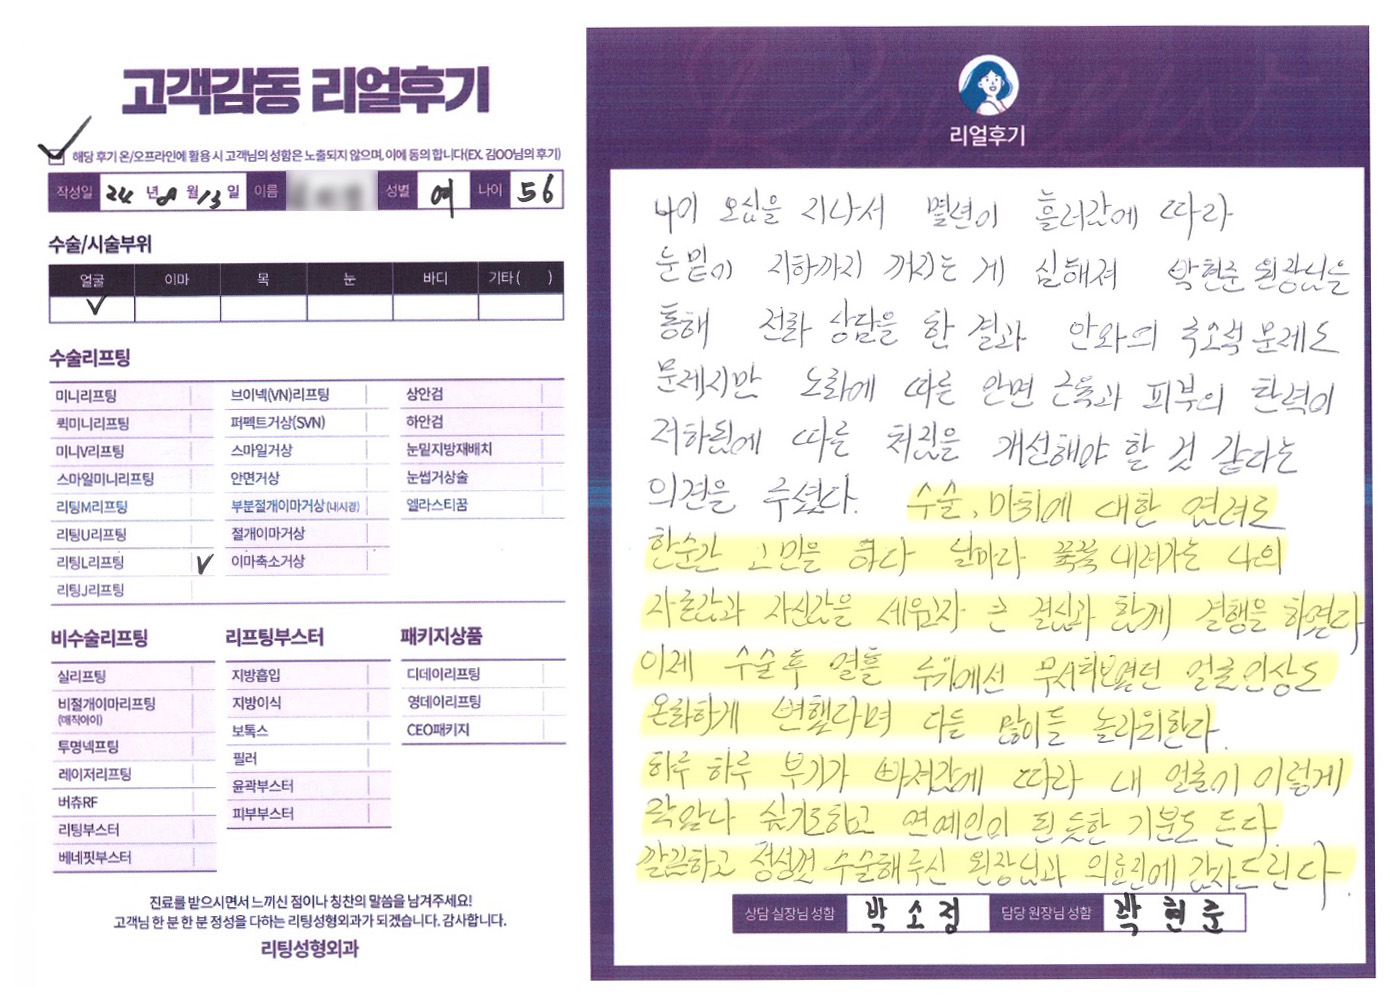 고객감동 리얼후기
해당 후기 온/오프라인에 활용 시 고객님의 성함은 노출되지 않으며, 이에 동의 합니다(EX. 김OO님의 후기)
작성일 24 년 8 월 13 일 이름 성별 여 나이 56
수술/시술부위
얼굴 이마 목 눈 바디 기타 ( )
수술리프팅
미니리프팅
퀵미니리프팅
미니V리프팅
스마일미니리프팅
리팅M리프팅
리팅U리프팅
리팅L리프팅
리팅J리프팅
브이넥(VN)리프팅
퍼펙트거상(SVN)
스마일거상
안면거상
부분절개이마거상(내시경)
절개이마거상
이마축소거상
상안검
하안검
눈밑지방재배치
눈썹거상술
엘라스티꿈
비수술리프팅
실리프팅
비절개이마리프팅
(매직아이)
투명넥프팅
레이저리프팅
버츄RF
리팅부스터
베네핏부스터
리프팅부스터
지방흡입
지방이식
보톡스
필러
윤곽부스터
피부부스터
패키지상품
디데이리프팅
영데이리프팅
CEO패키지
진료를 받으시면서 느끼신 점이나 칭찬의 말씀을 남겨주세요!
고객님 한 분 한 분 정성을 다하는 리팅성형외과가 되겠습니다. 감사합니다.
리팅성형외과
리얼후기
나이 오십을 지나서 몇년이 흘러감에 따라
눈밑이 지하까지 꺼지는 게 심해져 박현준 원장님을
통해 전화 상담을 한 결과 안와의 축소적 문제도
문제지만 노화에 따른 안면 근육과 피부의 탄력이
저하됨에 따른 처짐을 개선해야 할 것 같다는
의견을 주셨다. 수술, 마취에 대한 염려도
한순간 고민을 하다 날마다 뚝뚝 내려가는 나의
자존감과 자신감을 세우고자 큰 결심과 함께 결행을 하였다
이제 수술후 열흘 주위에선 무서워보였던 얼굴인상도
온화하게 변했다며 다들 많이들 놀라워한다.
하루 하루 부기가 빠져감에 따라 내 얼굴이 이렇게
작았나 싶기도하고 연예인이 된 듯한 기분도 든다.
깔끔하고 정성껏 수술해주신 원장님과 의료진에 감사드린다.
상담 실장님 성함 박소정 담당 원장님 성함 박현준